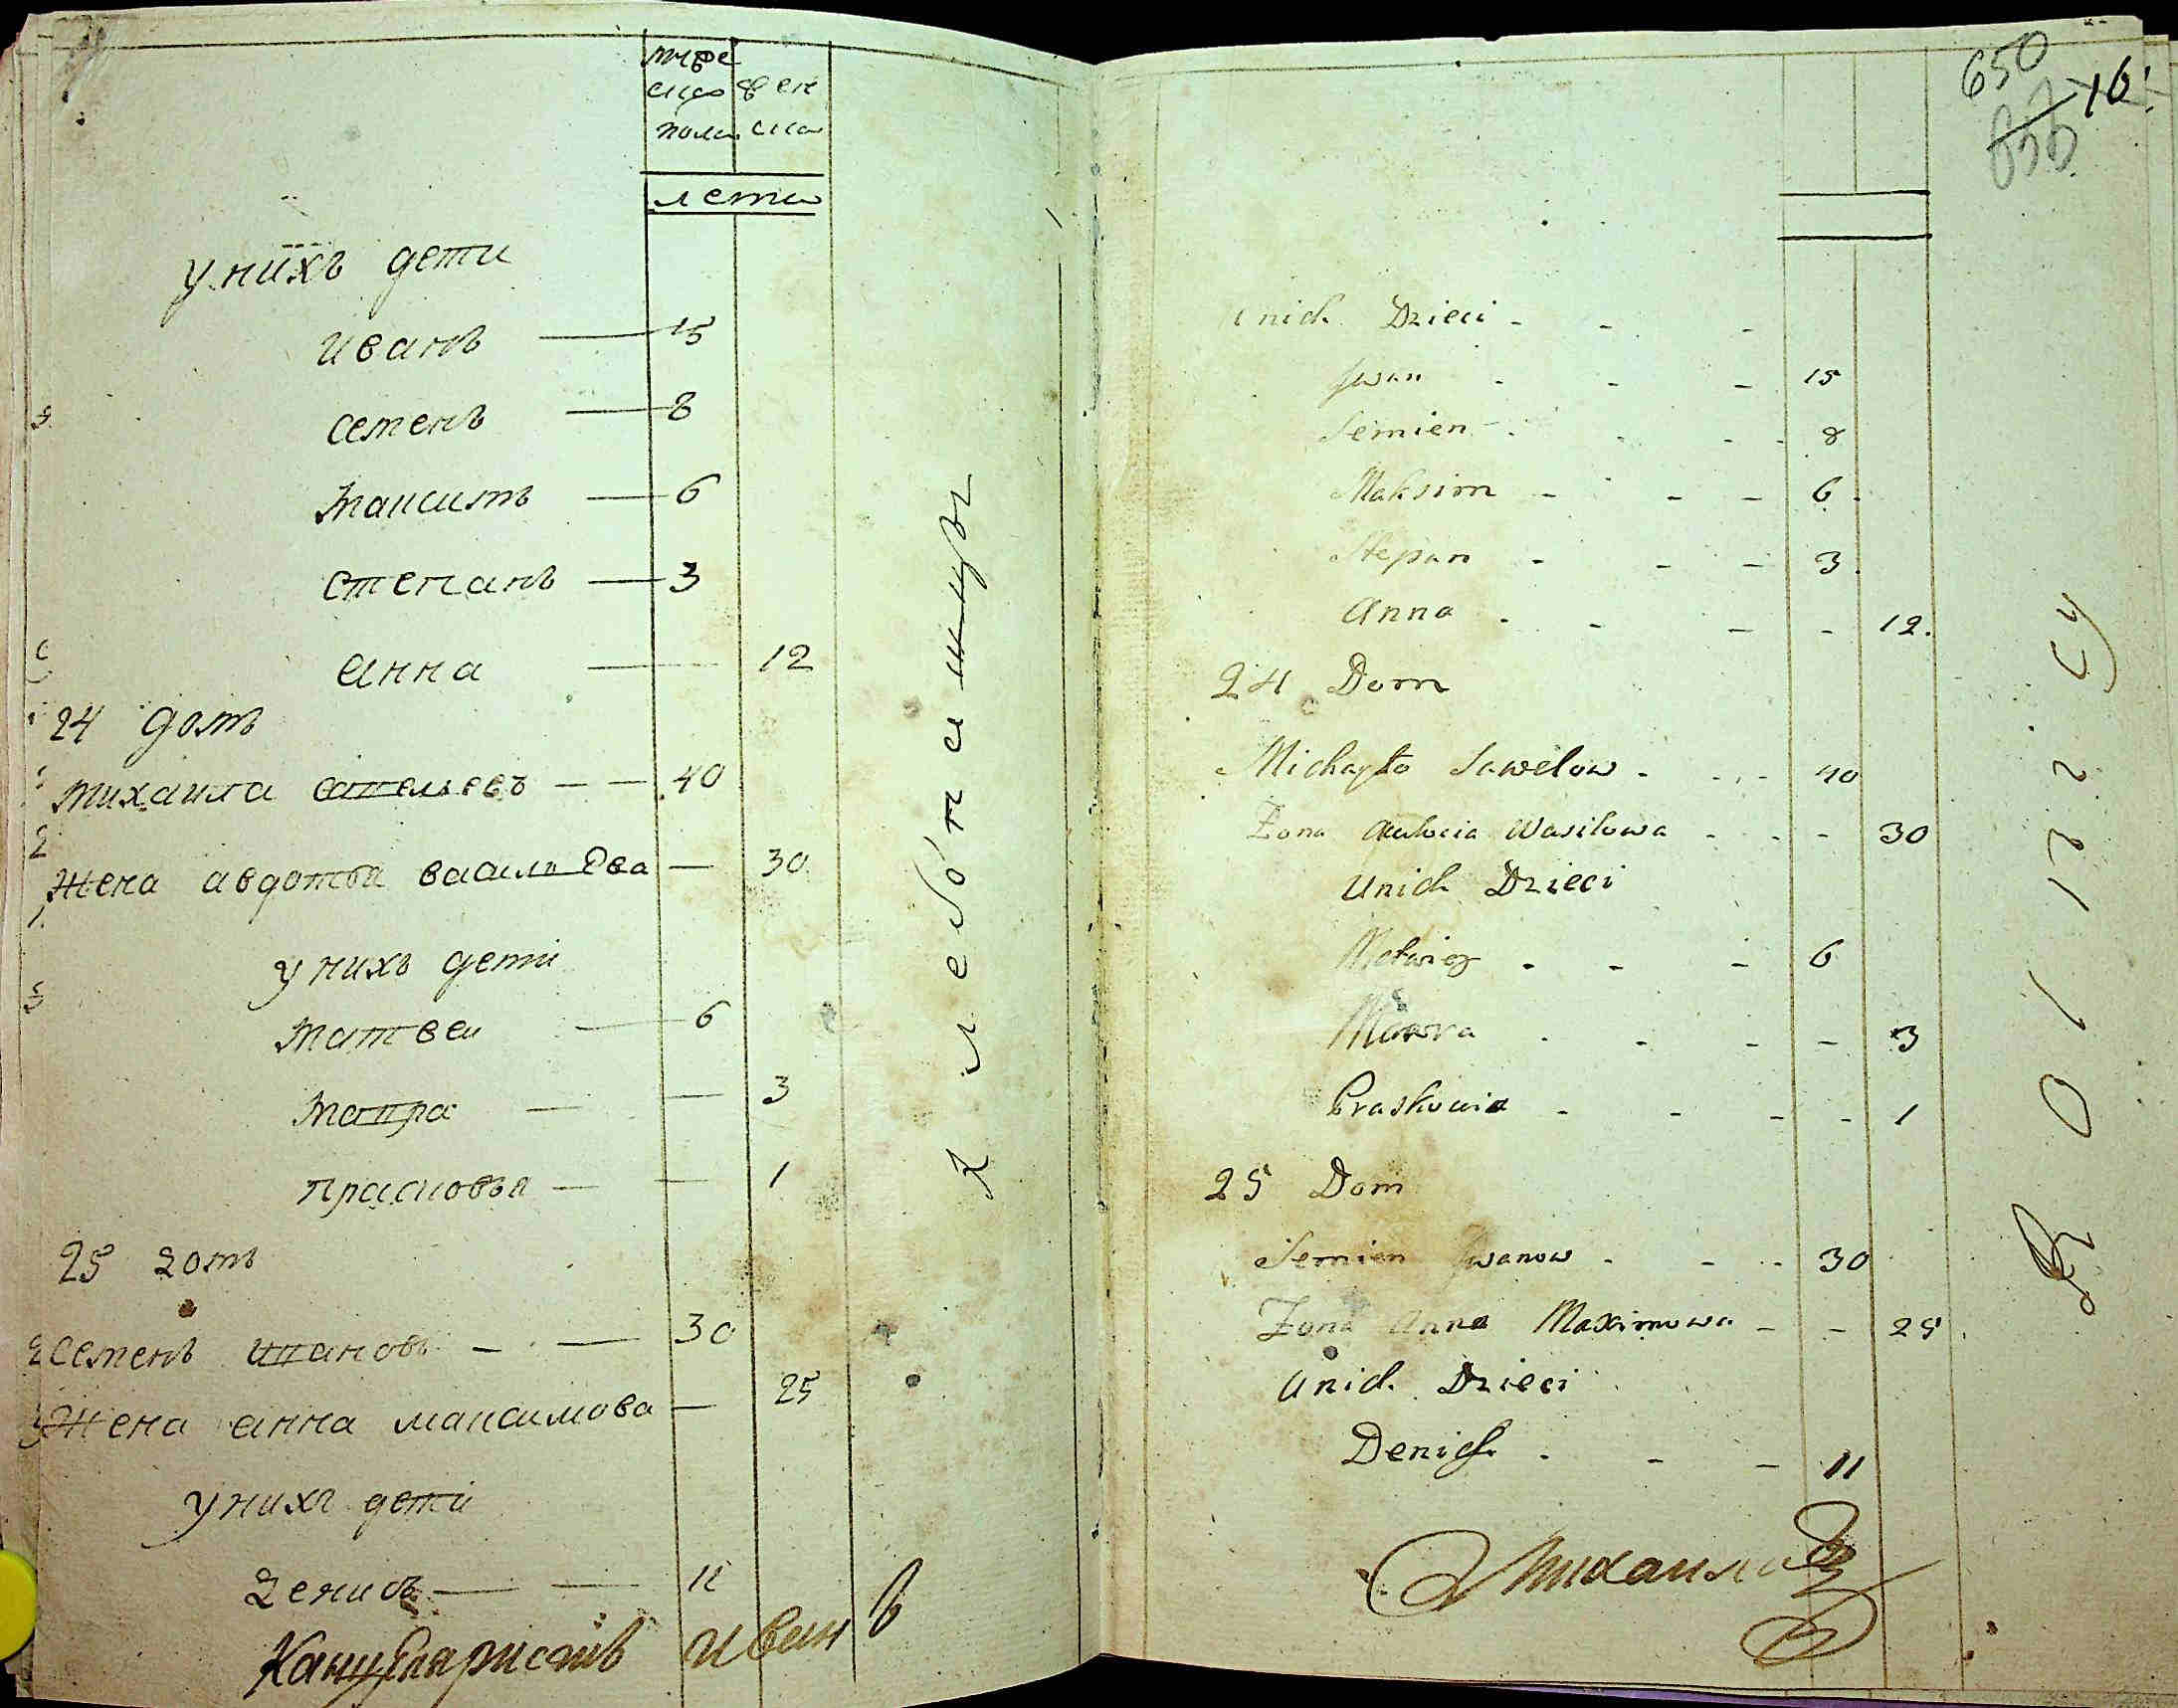 муже
ско
пола
жен
ска
лета
у нихъ дети
иванъ — 15
семенъ — 8
максимъ — 6
степанъ — 3
анна — 12
24 домъ
михаила савельевъ — — 40
жена авдотьа васильева — 30
у нихъ дети
матвеи — 6
мавра — — 3
прасковьа — — 1
25 домъ
семенъ ивановъ — — 30
жена анна максимова — 25
у нихъ дети
денисъ — — 11
Канцеляристъ иван
650
16
unich Dzieci - - -
Jwan - - - 15
Semien - - - 8
Maksim - - - 6
Stepan - - - 3
Anna - - - - 12.
24 Dom
Michayło Sawelow - - - 40
Żona Awdocia Wasilowa - - - 30
Unich Dzieci
Matwiey - - - 6
Mawra - - - - 3
Praskowia - - - - 1
25 Dom
Semien Jwanow - - - 30
Żona Anna Maximowa - - 25
Unich Dzieci
Denis - - - 11
Михаила